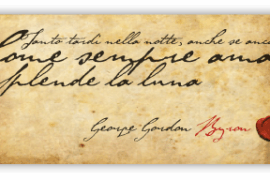 Tanto tardi nella notte, anche se anco
ome sempre ama
plende la luna
George Gordon Byron